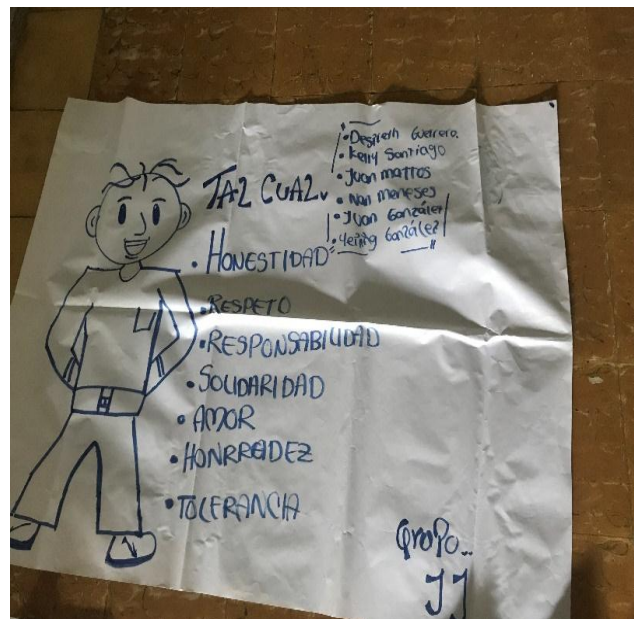 TAL CUAL.
• Desireth Guerrero.
• Kerry Santiago
• Juan mattos
• Nan meneses
• Juan González
• Yeiny González
• HONESTIDAD
• RESPETO
• RESPONSABILIDAD
• SOLIDARIDAD
• AMOR
• HONRRADEZ
• TOLERANCIA
Grupo..